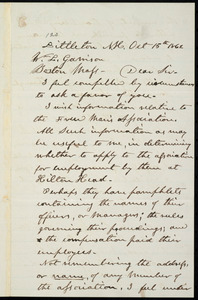 Littleton N.H. Oct 15th 1862
W. L. Garrison
Boston Mass - Dear Sir.
I feel compelled by circumstances
to ask a favor of you.
I wish information relative to
the Free Man's Association.
All such information as may
be useful to me, in determining
whether to apply to the association
for employment by them at
Hilton Head.
Perhaps they have pamphlets
containing the names of their
officers, or Managers; the rules
governing their proceedings; and
the compensation paid their
employees.
Not remembering the address,
or name, of any Member of
the association, I feel under